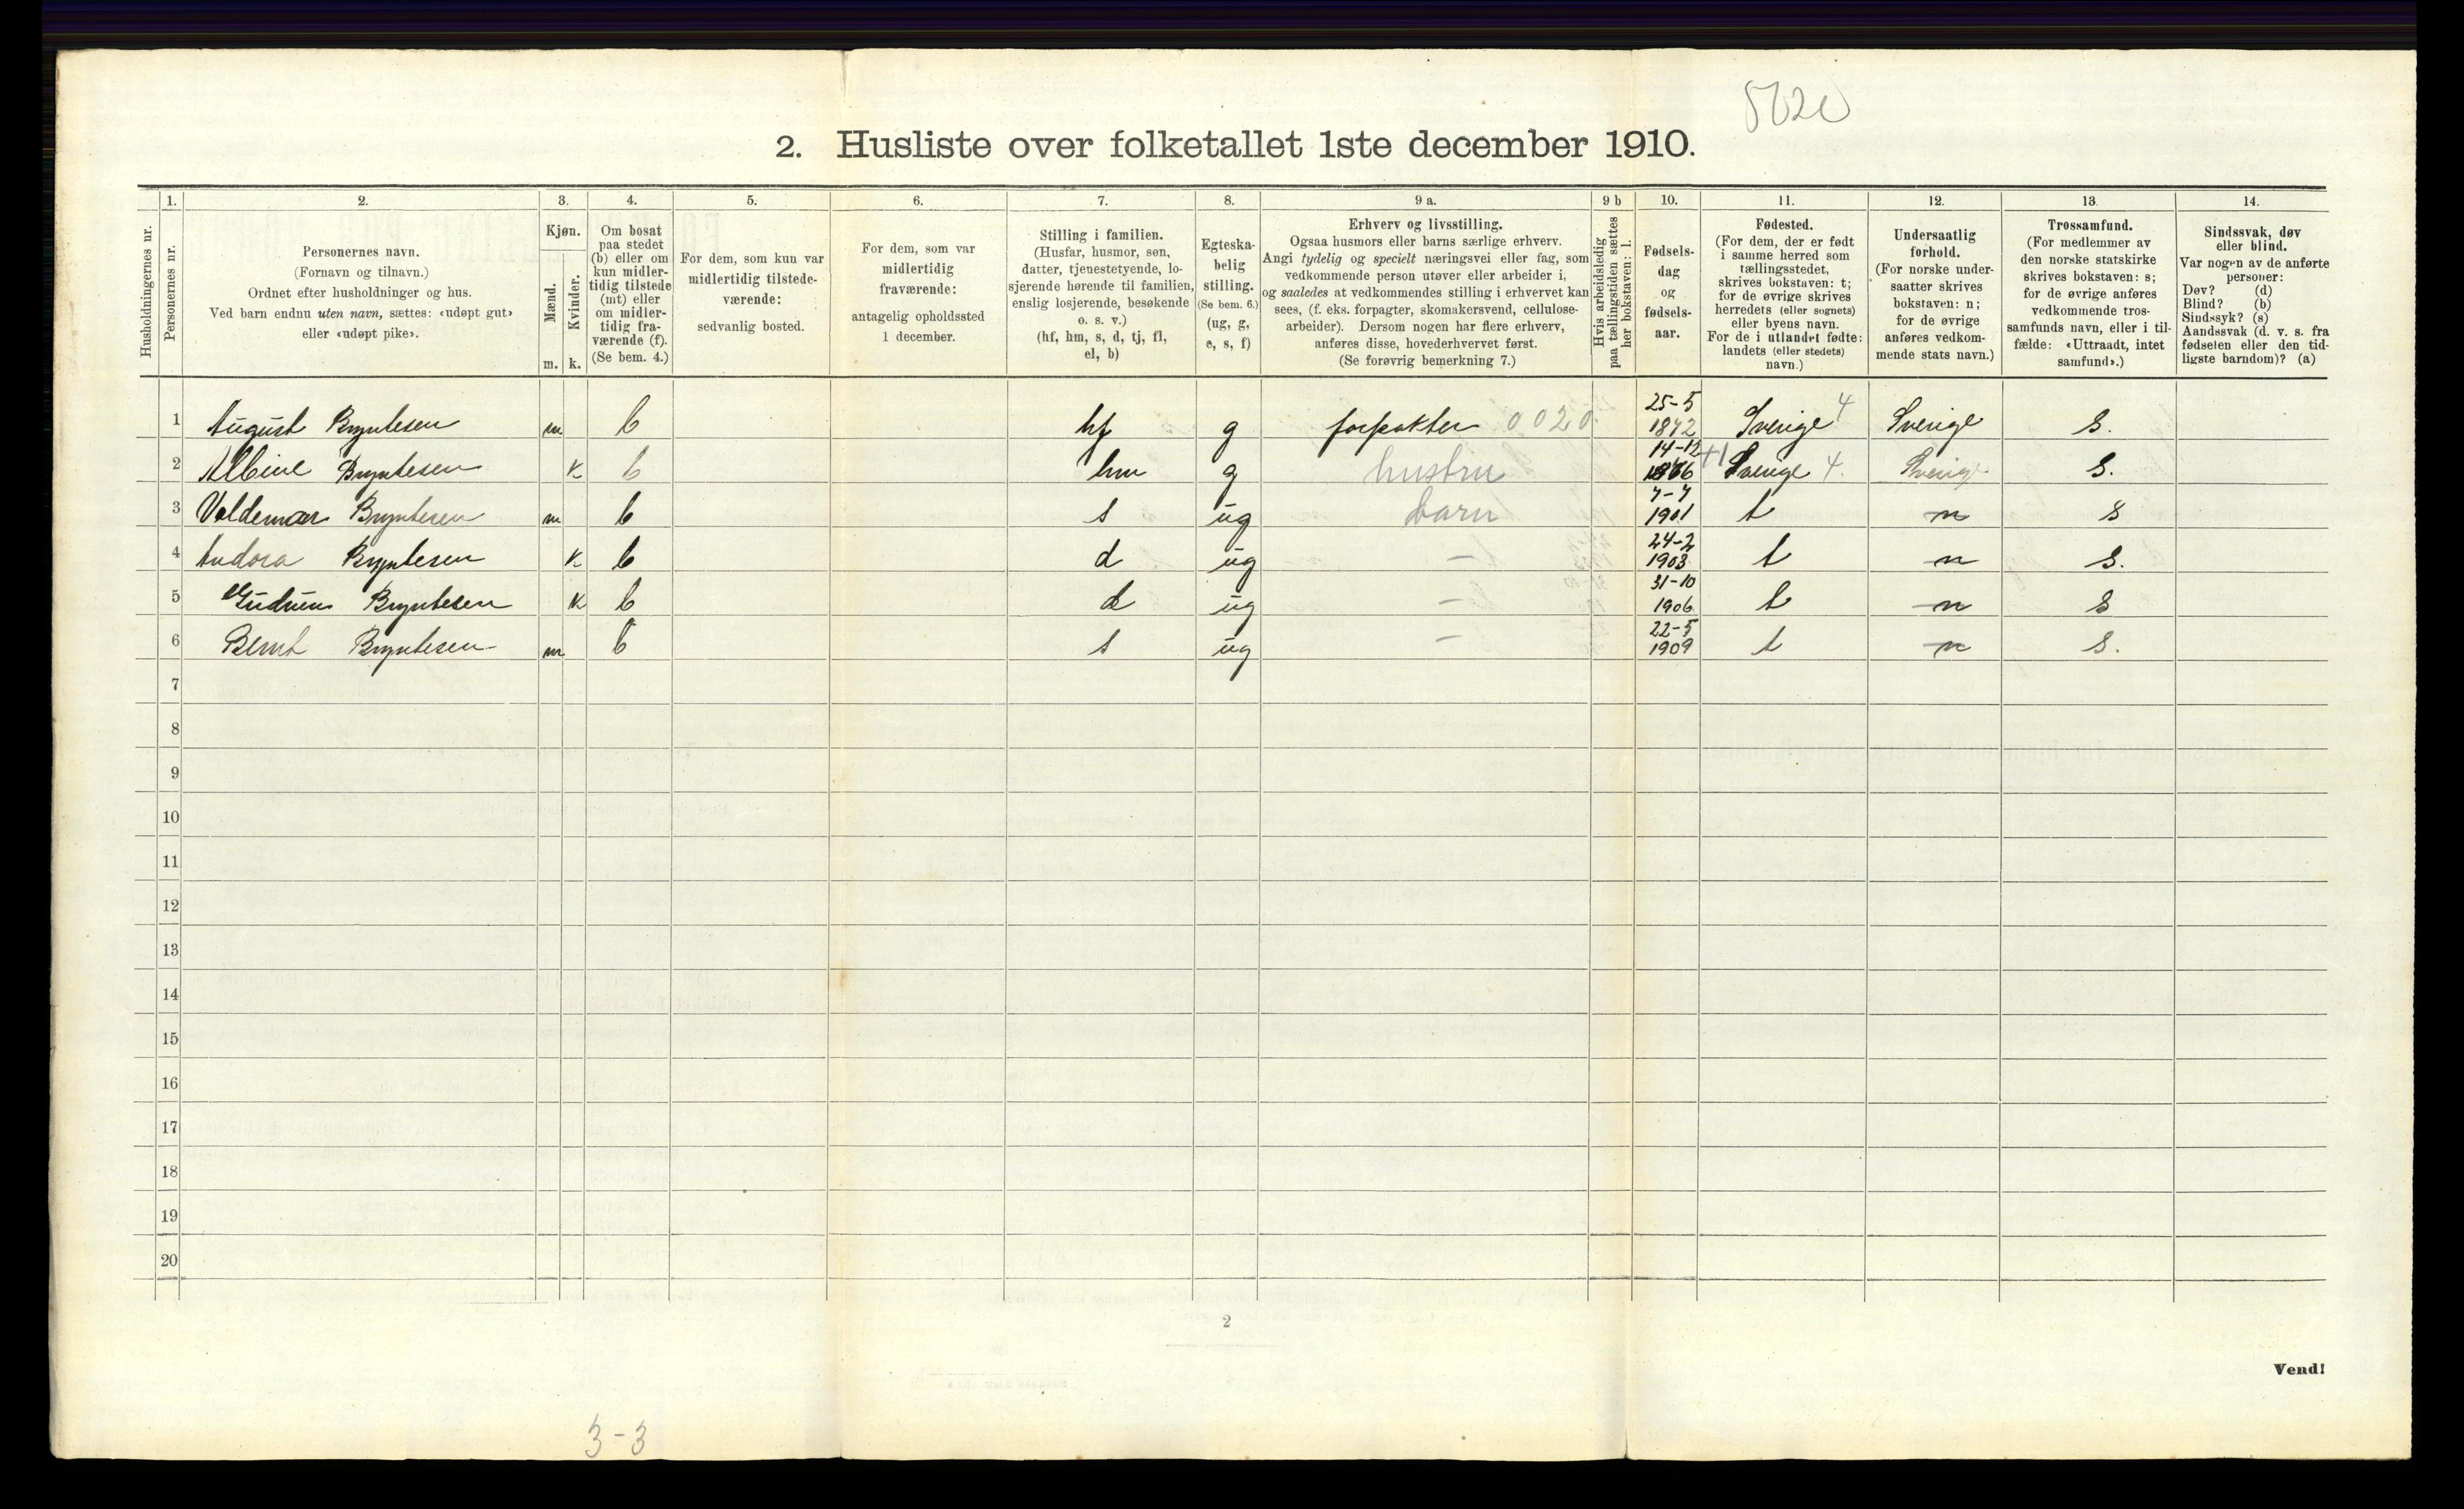 5620
2. Husliste over folketallet 1ste december 1910.
1. 2. 3. 4. 5. 6. 7. 8. 9 a. 9 b 10. 11. 12. 13. 14.
Husholdningernes nr.
Personernes nr.
Personernes navn.
(Fornavn og tilnavn.)
Ordnet efter husholdninger og hus.
Ved barn endnu uten navn, sættes: «udøpt gut»
eller «udøpt pike».
Kjøn.
Mænd.
Kvinder.
m. k.
Om bosat
paa stedet
(b) eller om
kun midler-
tidig tilstede
(mt) eller
om midler-
tidig fra-
værende (f).
(Se bem. 4.)
For dem, som kun var
midlertidig tilstede-
værende:
sedvanlig bosted.
For dem, som var
midlertidig
fraværende:
antagelig opholdssted
1 december.
Stilling i familien.
(Husfar, husmor, søn,
datter, tjenestetyende, lo-
sjerende hørende til familien,
enslig losjerende, besøkende
o. s. v.)
(hf, hm, s, d, tj, fl,
el, b)
Egteska-
belig
stilling.
(Se bem. 6.)
(ug, g,
e, s, f)
Erhverv og livsstilling.
Ogsaa husmors eller barns særlige erhverv.
Angi tydelig og specielt næringsvei eller fag, som
vedkommende person utøver eller arbeider i,
og saaledes at vedkommendes stilling i erhvervet kan
sees, (f. eks. forpagter, skomakersvend, cellulose-
arbeider). Dersom nogen har flere erhverv,
anføres disse, hovederhvervet først.
(Se forøvrig bemerkning 7.)
Hvis arbeidsledig
paa tællingstiden sættes
her bokstaven: l.
Fødsels-
dag
og
fødsels-
aar.
Fødested.
(For dem, der er født
i samme herred som
tællingsstedet,
skrives bokstaven: t;
for de øvrige skrives
herredets (eller sognets)
eller byens navn.
For de i utlandet fødte:
landets (eller stedets)
navn.)
Undersaatlig
forhold.
(For norske under-
saatter skrives
bokstaven: n;
for de øvrige
anføres vedkom-
mende stats navn.)
Trossamfund.
(For medlemmer av
den norske statskirke
skrives bokstaven: s;
for de øvrige anføres
vedkommende tros-
samfunds navn, eller i til-
fælde: «Uttraadt, intet
samfund».)
Sindssvak, døv
eller blind.
Var nogen av de anførte
personer:
Døv? (d)
Blind? (b)
Sindssyk? (s)
Aandssvak (d. v. s. fra
fødselen eller den tid-
ligste barndom)? (a)
1 August Bryntesen m b hf g forpakter 0020 25-5 1872 Sverige 4 Sverige s.
2 Albine Bryntesen k b hm g hustru 14-12 1876 Sverige 4. Sverige s.
3 Valdemar Bryntesen m b s ug barn 7-7 1901 t n s
4 Andora Bryntesen k b d ug — 24-2 1903 t n s.
5 Gudrun Bryntesen k b d ug — 31-10 1906 t n s
6 Bernt Bryntesen m b s ug — 22-5 1909 t n s.
7
8
9
10
11
12
13
14
15
16
17
18
19
20
2
Vend!
3-3